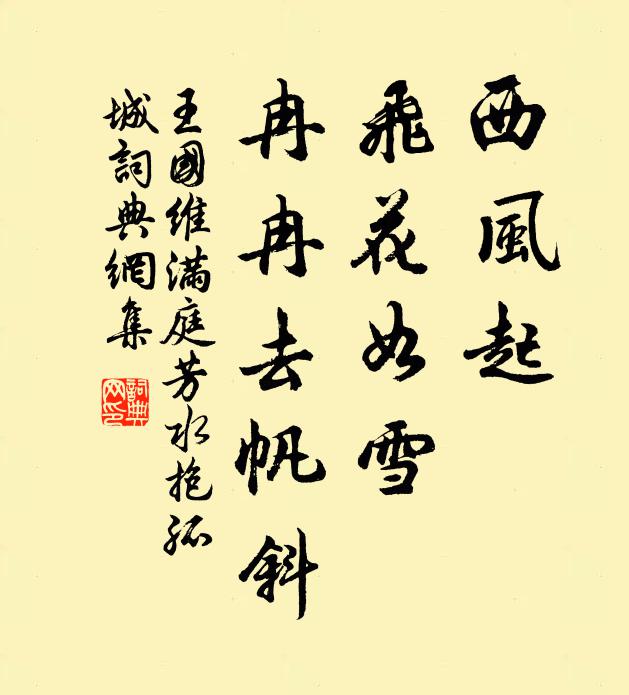 西風起
飛花如雪
冉冉去帆斜
王國維滿庭芳水抱孤
城詞典網集
詞典
网印